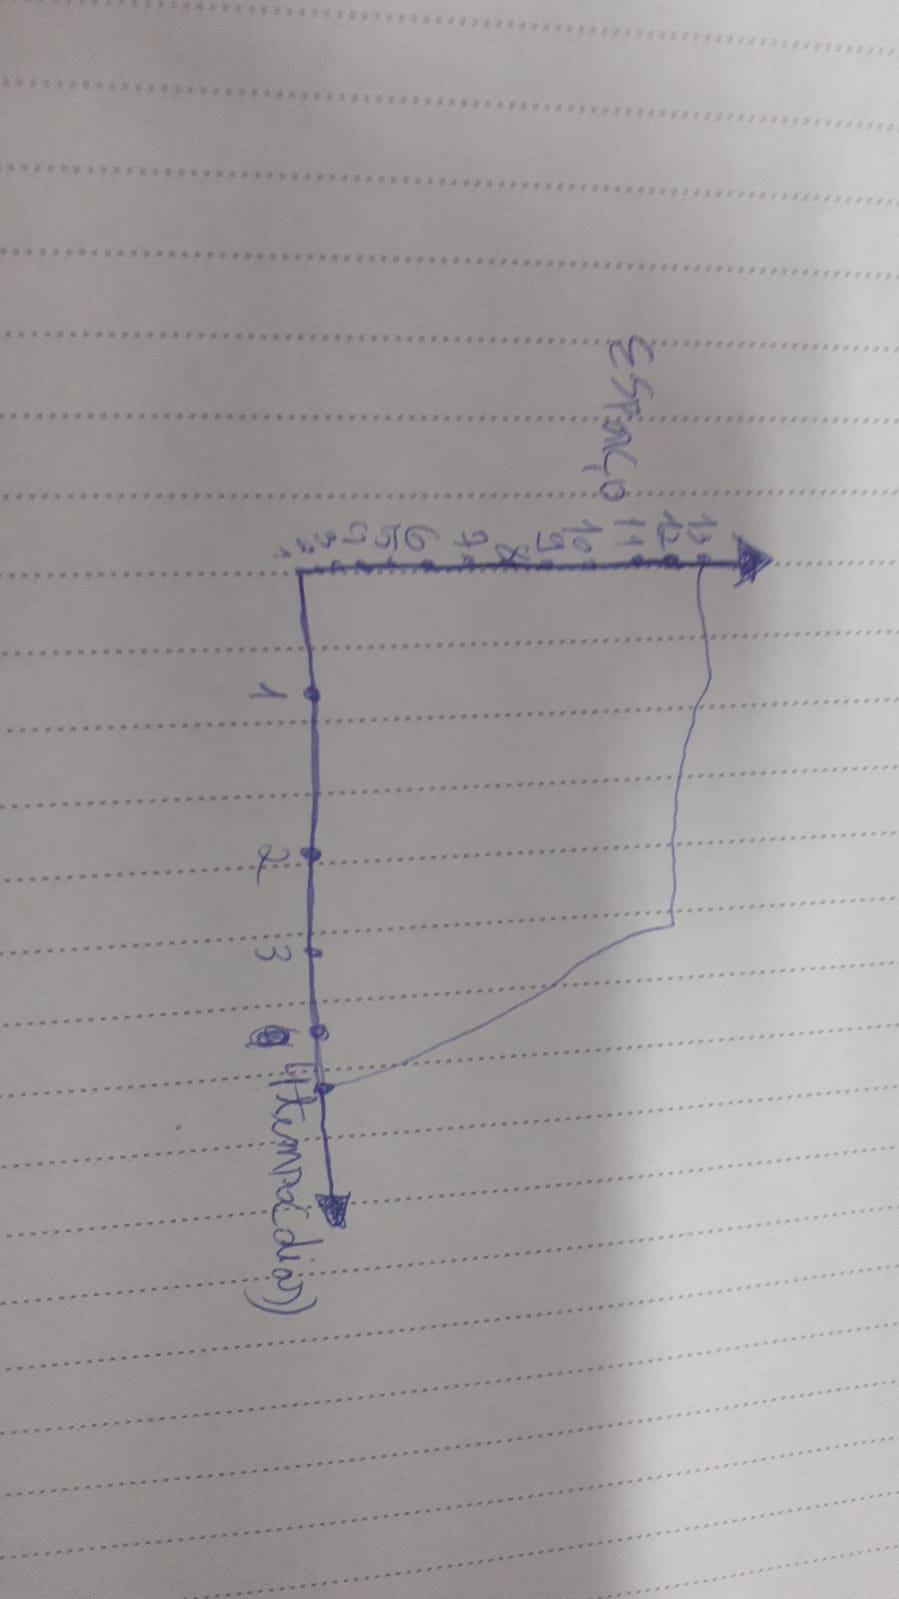 Espaço
13
12
11
10
9
8
7
6
5
4
3
2
1
1 2 3 (tempo dias)